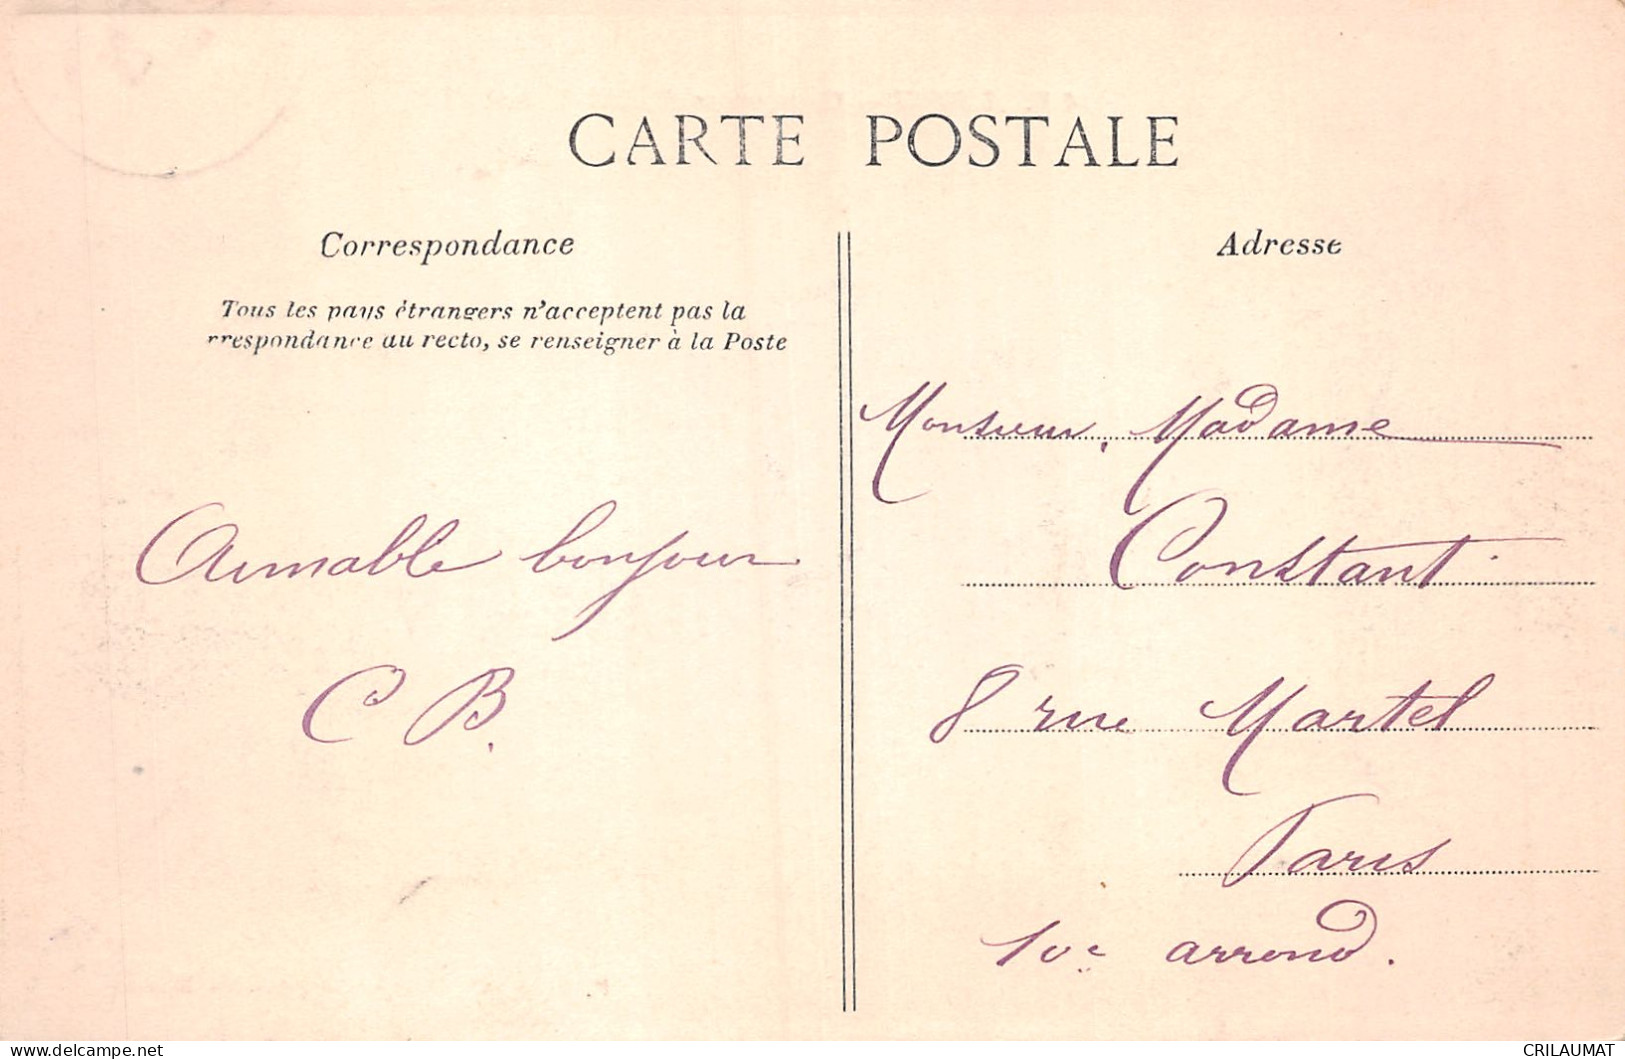 CARTE POSTALE
Correspondance
Tous les pays étrangers n'acceptent pas la
rrespondance au recto, se renseigner à la Poste
Aimable bonjour
C B.
Adresse
Monsieur, Madame
Constant.
8 rue Martel
Paris
10e arrond.
www.delcampe.net
CRILAUMAT